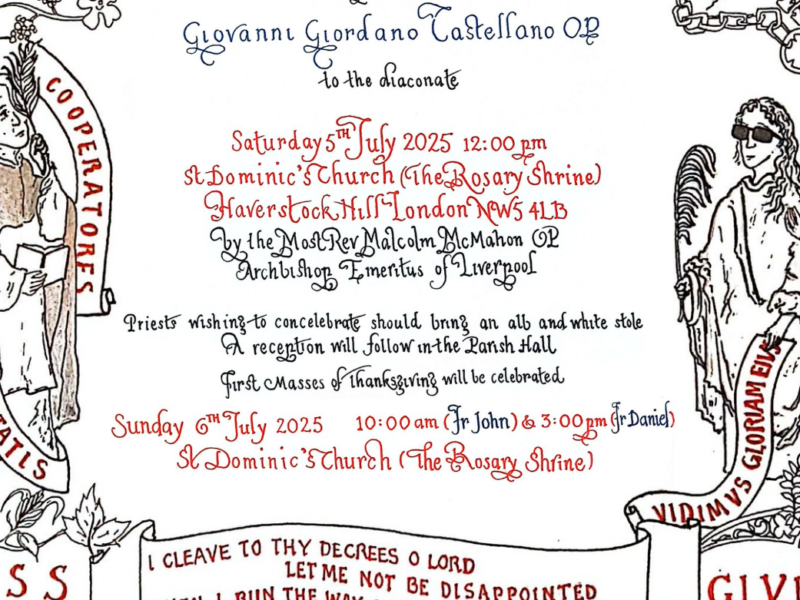 Giovanni Giordano Castellano OP
to the diaconate
Saturday 5TH July 2025 12:00 pm
St Dominic's Church (The Rosary Shrine)
Haverstock Hill London NW5 4LB
by the Most Rev Malcolm McMahon OP
Archbishop Emeritus of Liverpool
Priests wishing to concelebrate should bring an alb and white stole
A reception will follow in the Parish Hall
First Masses of Thanksgiving will be celebrated
Sunday 6TH July 2025 10:00 am (Fr John) & 3:00 pm (Fr Daniel)
St Dominic's Church (The Rosary Shrine)
COOPERATORES
TATIS
VIDIMVS GLORIAM EIVS
I CLEAVE TO THY DECREES O LORD
LET ME NOT BE DISAPPOINTED
I RUN THE WAY
SS
GIV